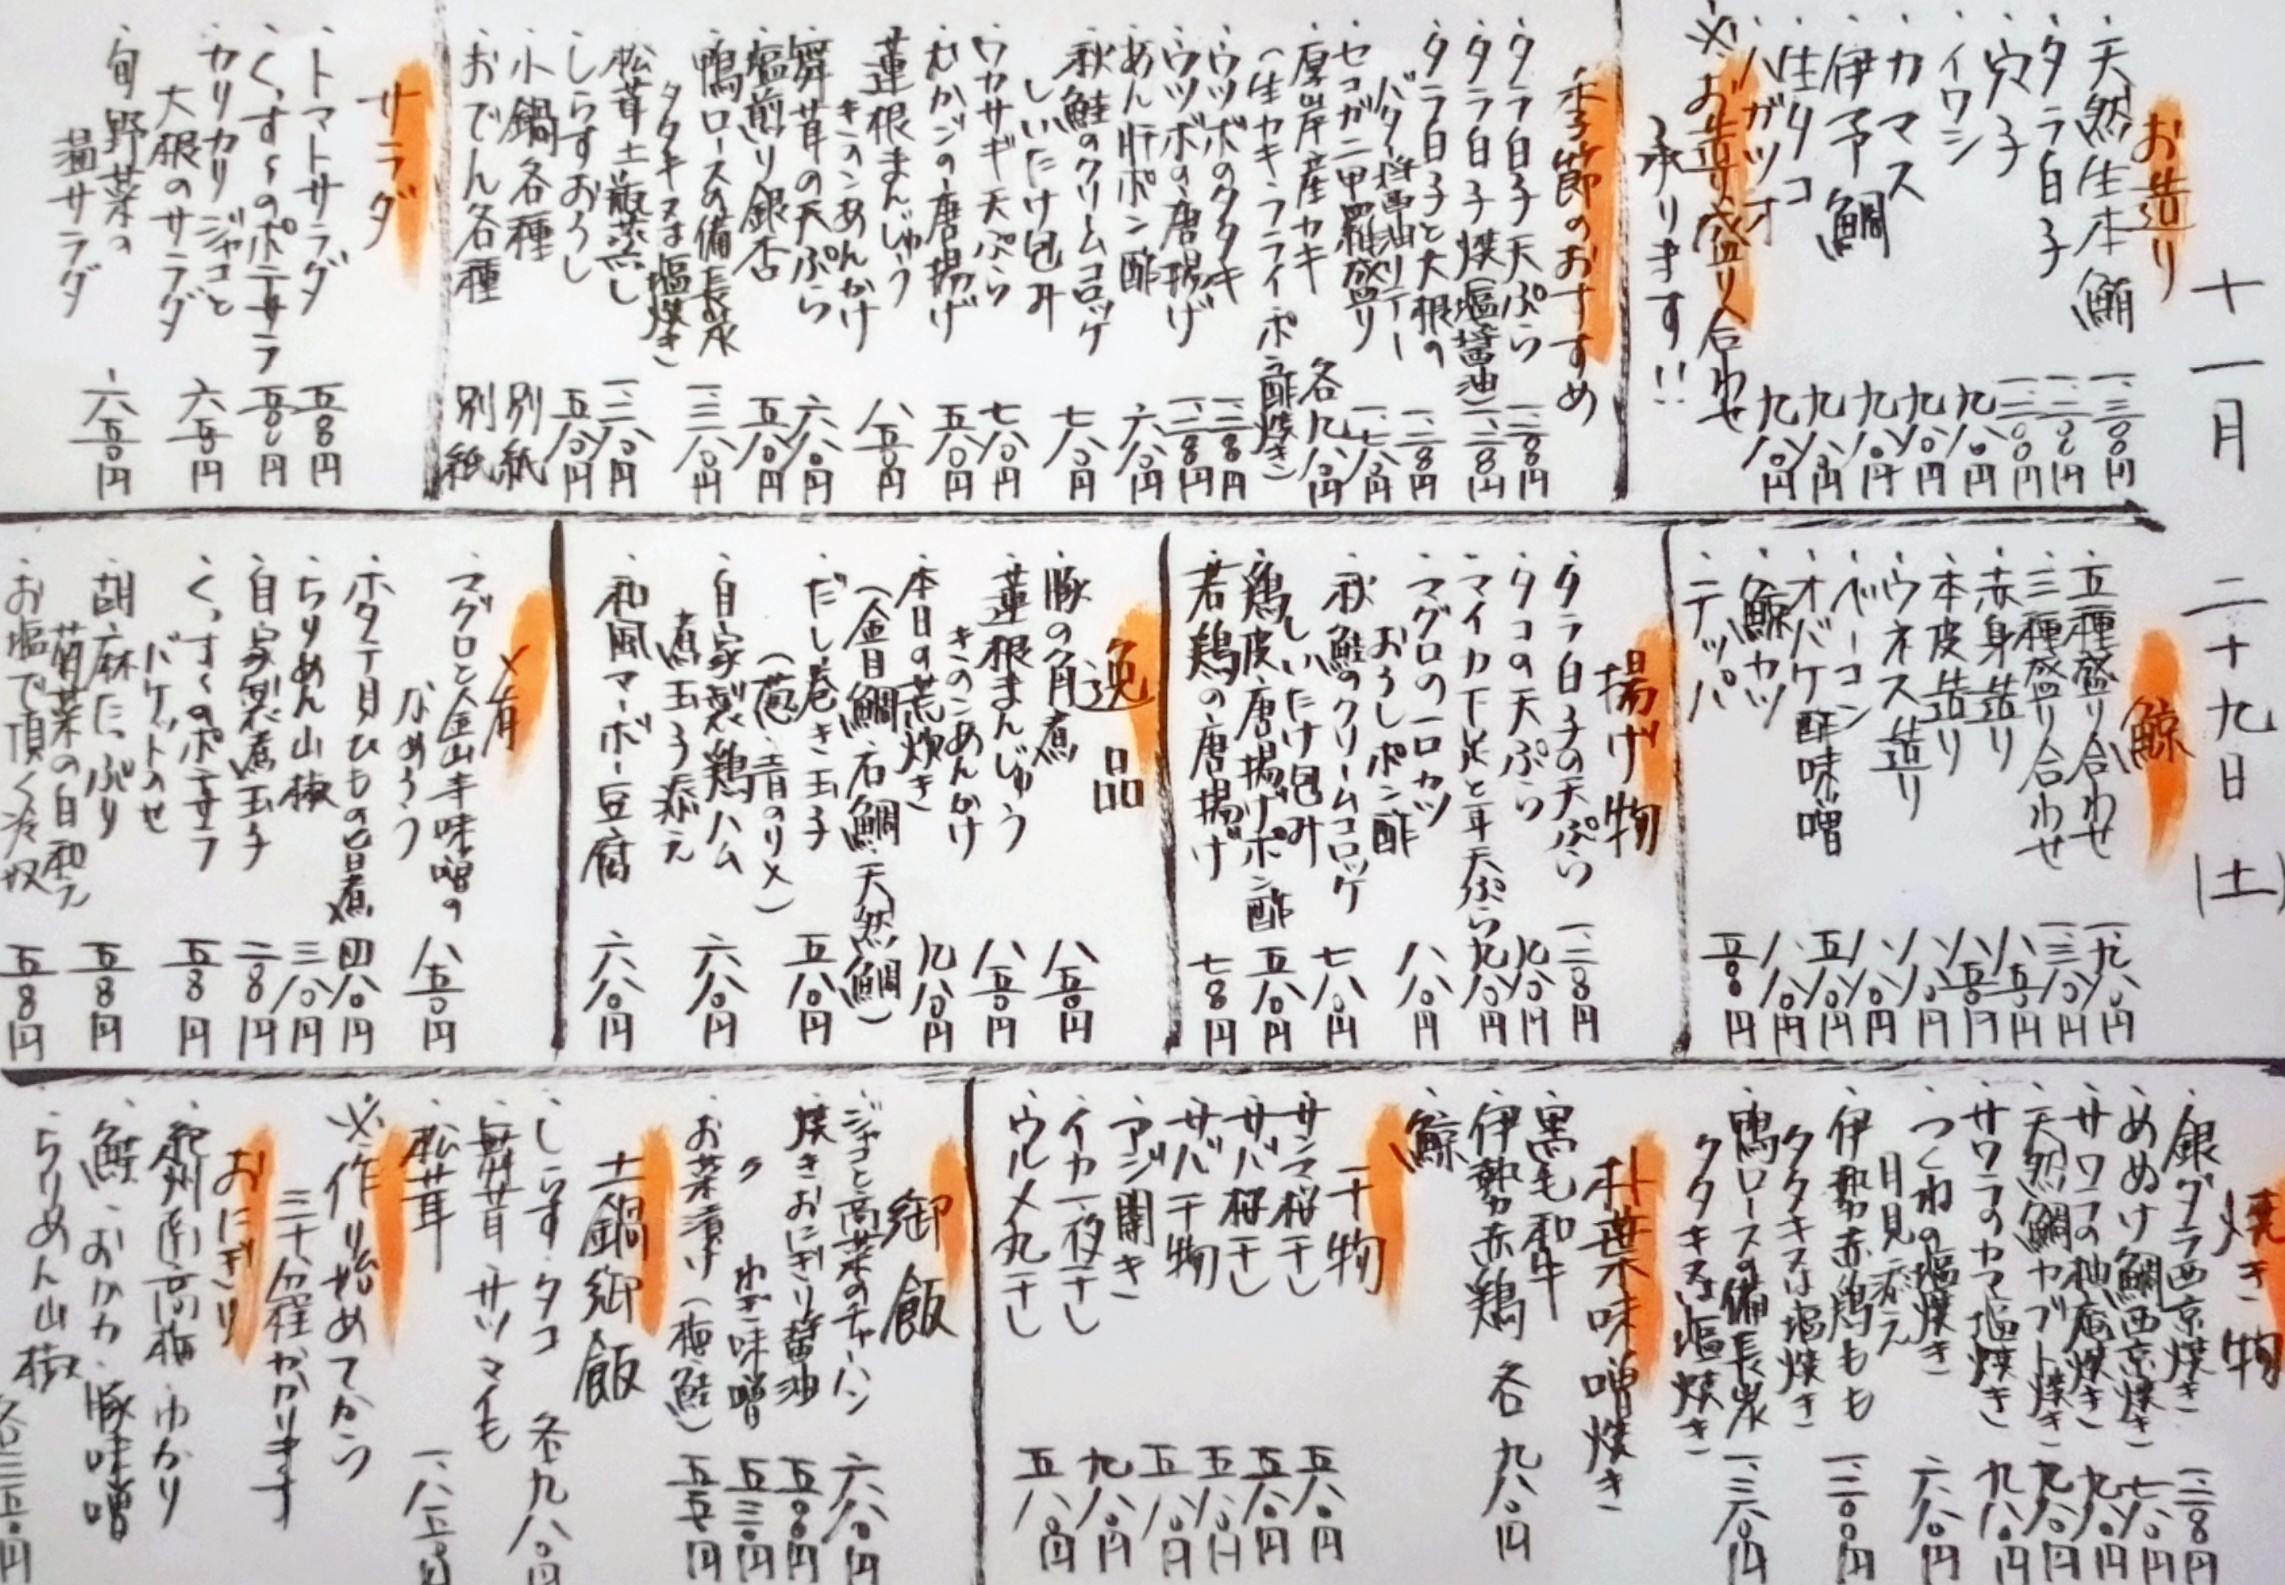 十一月 二十九日(土)
お造り
・天然生本鮪
・タラ白子
・穴子
・イワシ
・カマス
・伊予鯛
・生タコ
・ハガツオ 九八〇円
※お造り盛り合わせ
承ります!!
季節のおすすめ
・タラ白子天ぷら
・タラ白子焼(塩・醤油)
・タラ白子と大根の
バター醤油ソテー
・セコガニ甲羅盛り
・厚岸産カキ 各九八〇円
(生カキ・フライ・ポン酢・焼き)
・ウツボのタタキ
・ウツボの唐揚げ
・あん肝ポン酢 六八〇円
・秋鮭のクリームコロッケ
しいたけ包み 七八〇円
・ワカサギ天ぷら 七八〇円
・むかごの唐揚げ 五八〇円
・蓮根まんじゅう
きのこあんかけ 八五〇円
・舞茸の天ぷら 六八〇円
・塩煎り銀杏 五八〇円
・鴨ロースの備長炭
タタキ又は塩焼き 一、三八〇円
・松茸土瓶蒸し 一、三八〇円
・しらすおろし 五八〇円
・小鍋各種 別紙
・おでん各種 別紙
サラダ
・トマトサラダ 五五〇円
・くっすーのポテサラ 五五〇円
・カリカリジャコと
大根のサラダ 六五〇円
・旬野菜の
温サラダ 六五〇円
鯨
・五種盛り合わせ
・三種盛り合わせ
・赤身造り
・本皮造り
・ウネス造り
・ベーコン
・オバケ酢味噌
・鯨カツ
・テッパ
揚げ物
・タラ白子の天ぷら
・タコの天ぷら 九八〇円
・マイカ下足と耳天ぷら 九八〇円
・マグロの一口カツ
おろしポン酢 八八〇円
・秋鮭のクリームコロッケ
しいたけ包み 七八〇円
・鶏皮唐揚げポン酢 五八〇円
・若鶏の唐揚げ
逸品
・豚の角煮 八五〇円
・蓮根まんじゅう
きのこあんかけ 八五〇円
・本日の荒炊き 九八〇円
(金目鯛・石鯛・天然鯛)
・だし巻き玉子 五八〇円
(葱・青のり・〆)
・自家製鶏ハム
煮玉子添え 六八〇円
・和風マーボー豆腐 六八〇円
〆肴
・マグロと金山寺味噌の
なめろう 八五〇円
・ホタテ貝ひもの旨煮 四八〇円
・ちりめん山椒 三八〇円
・自家製煮玉子
・くっすーのポテサラ
バゲットのせ
・胡麻たっぷり
菊菜の白和え
・お塩で頂く冷奴
焼き物
・銀ダラ西京焼き
・めぬけ鯛西京焼き
・サワラの柚庵焼き 九八〇円
・天然鯛カブト焼き 九八〇円
・サワラのカマ塩焼き 九八〇円
・つくねの塩焼き
月見添え 六八〇円
・伊勢赤鶏もも
タタキ又は塩焼き
・鴨ロースの備長炭
タタキ又は塩焼き 一、三八〇円
朴葉味噌焼き
・黒毛和牛
・伊勢赤鶏 各九八〇円
・鯨
干物
・サンマ桜干し 五八〇円
・サバ桜干し 五八〇円
・サバ干物 五八〇円
・アジ開き 五八〇円
・イカ一夜干し 九八〇円
・ウルメ丸干し 五八〇円
御飯
・ジャコと高菜のチャーハン 六八〇円
・焼きおにぎり醤油
・〃 ねぎ味噌
・お茶漬け(梅・鮭)
土鍋御飯
・しらす・タコ 各九八〇円
・舞茸・サツマイモ
・松茸
※作り始めてから
三十分程かかります
おにぎり
・紀州南高梅・ゆかり
・鮭・おかか・豚味噌
・ちりめん山椒